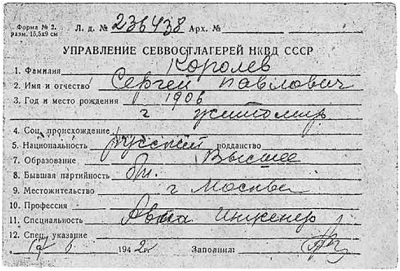 Форма № 2.
разм. 15,5x9 см
Л. д. № 236438 Арх. №
УПРАВЛЕНИЕ СЕВВОСТЛАГЕРЕЙ НКВД СССР
1. Фамилия Королев
2. Имя и отчество Сергей Павлович
3. Год и место рождения 1906
г Житомир
4. Соц. происхождение
5. Национальность русский подданство
7. Образование Высшее
8. Бывшая партийность бп.
9. Местожительство г Москва
10. Профессия
11. Специальность Авиа Инженер
12. Спец. указание
194 г. Заполнил: